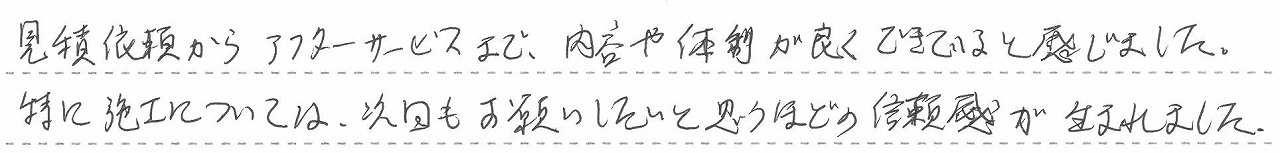 見積依頼から アフターサービスまで、内容や体制が良くできていると感じました。
特に施工については、次回もお願いしたいと思うほどの信頼感が生まれました.